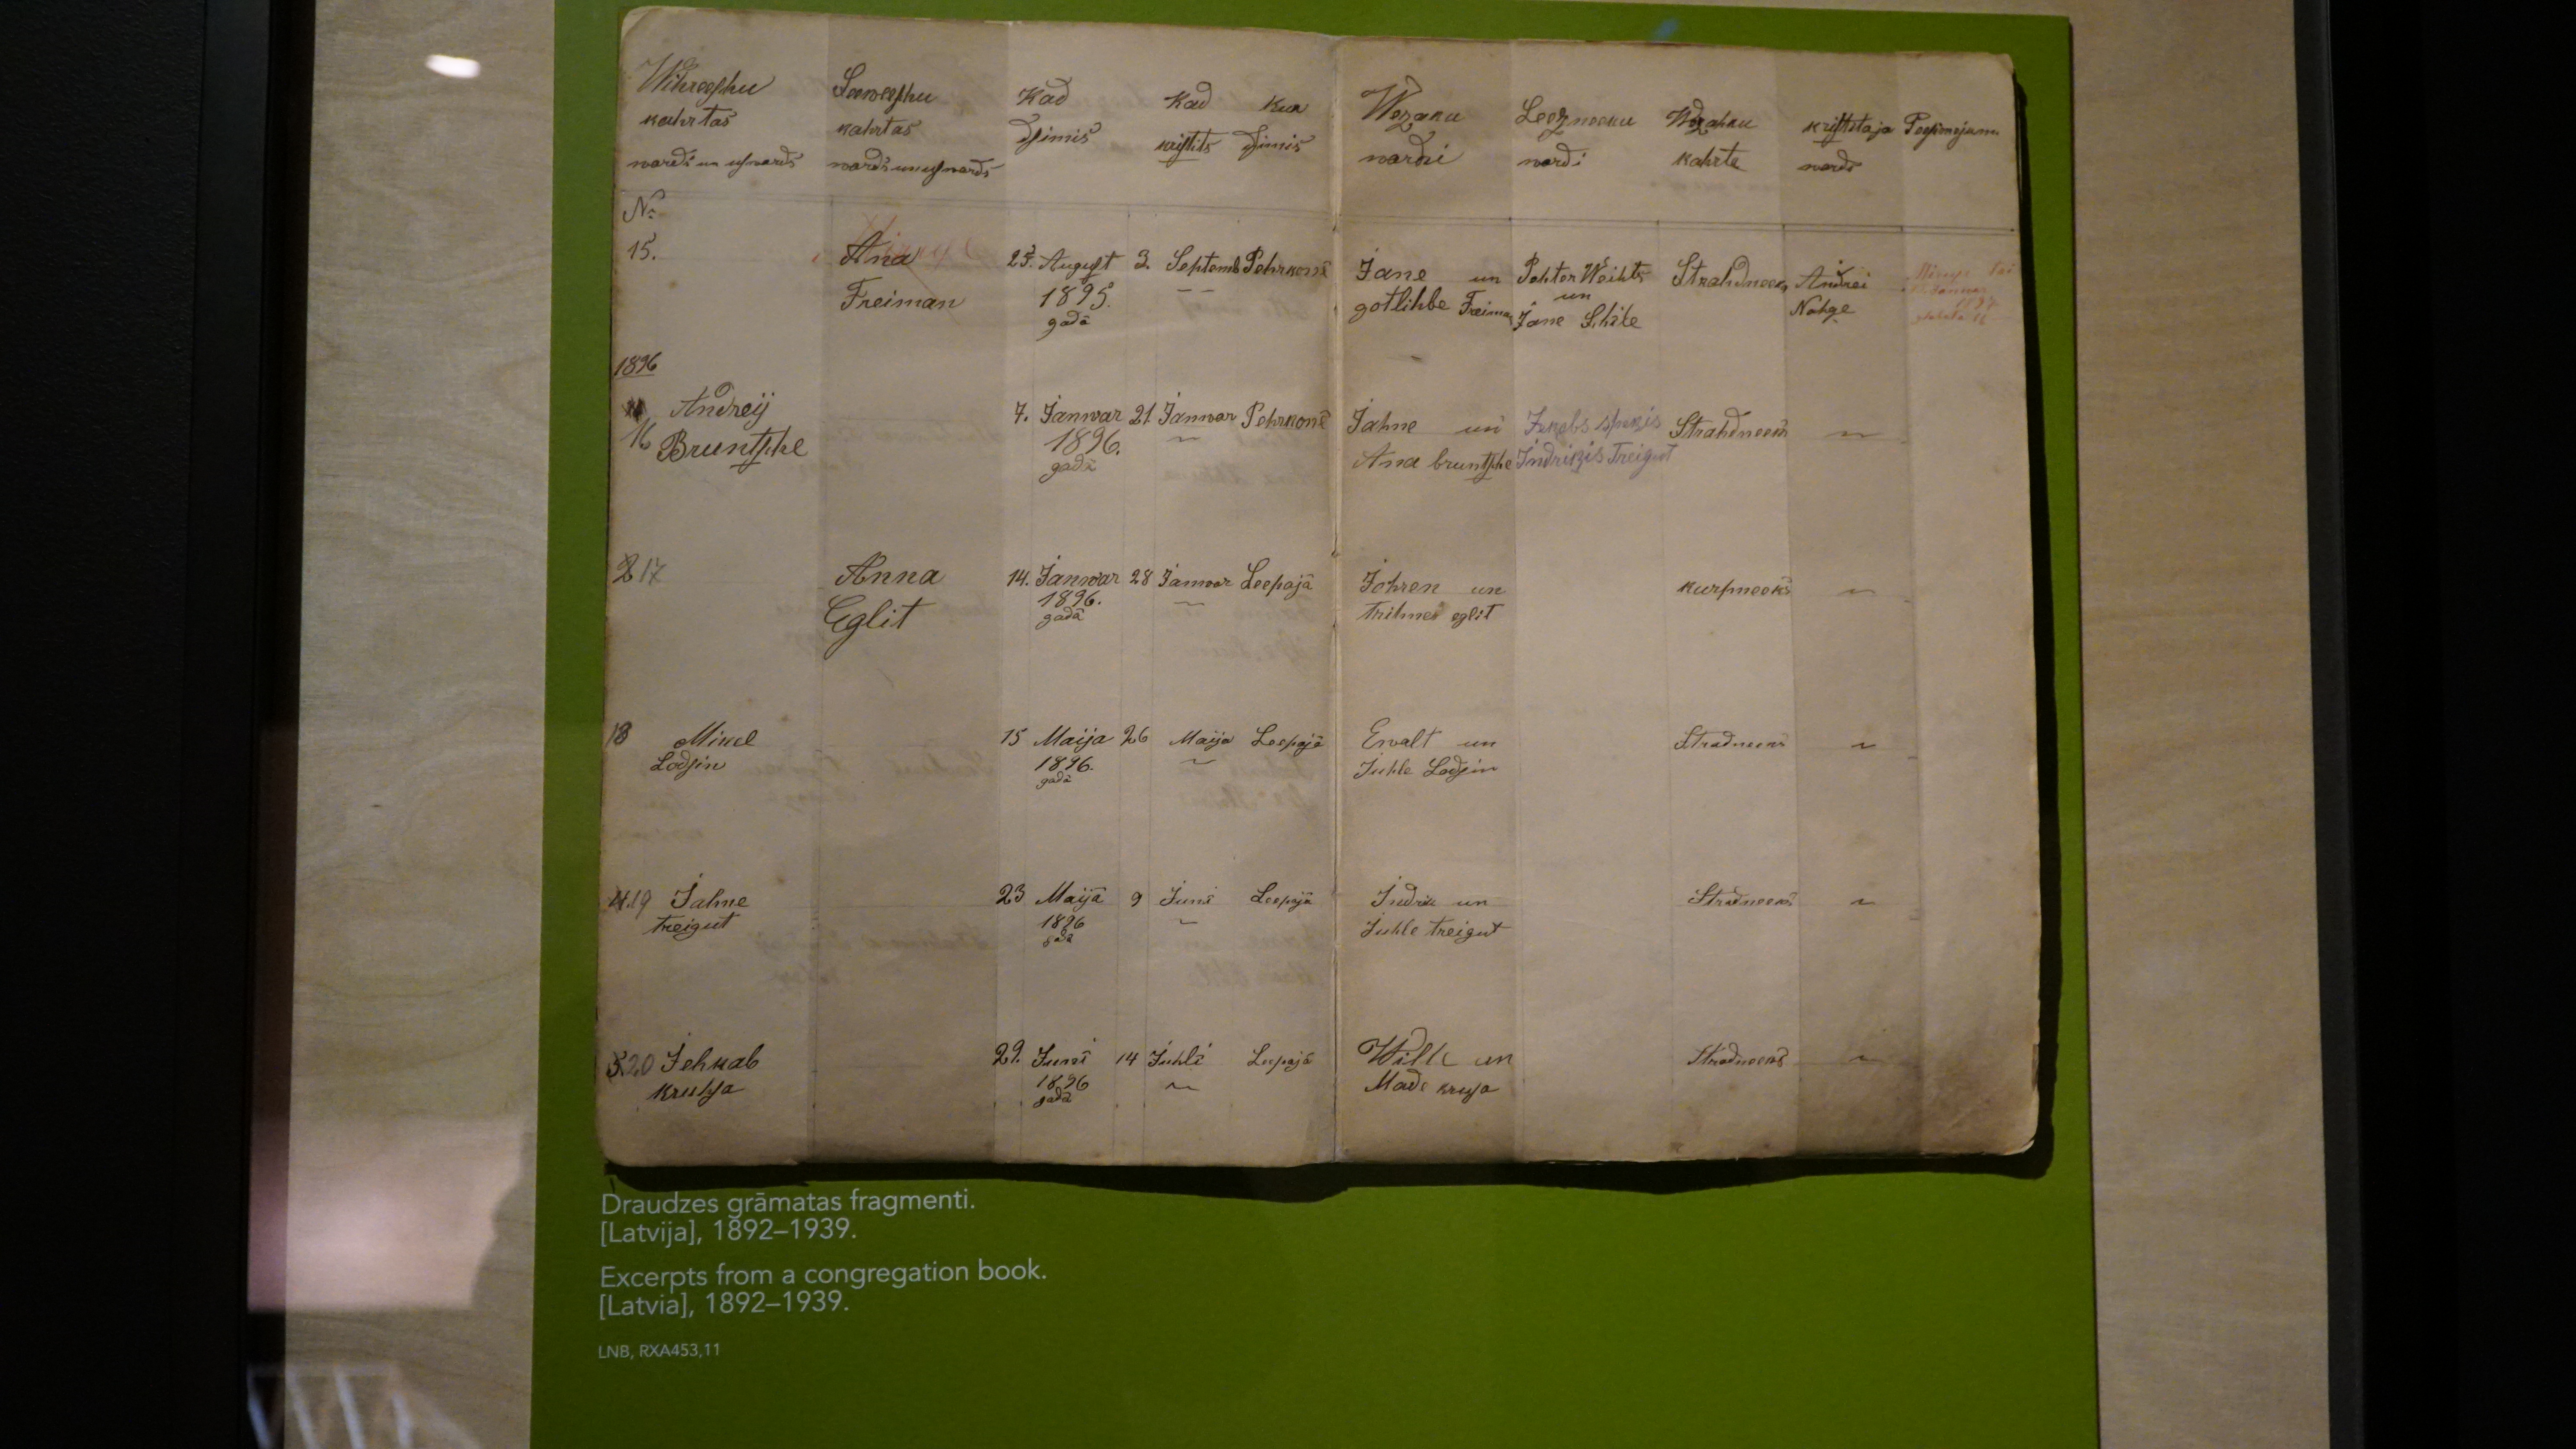 Wihreeſchu
kahrtas
wards un uſwards
Seeweeſchu
kahrtas
wards un uſwards
Kad
dſimis
Kad
kriſtits
Kur
dſimis
Wezaku
wardi
Leezneeku
wardi
Wezahku
kahrta
kriſtitaja
wards
№
15.
Ana
Freiman
25. Auguſt
1895.
gadā
3. Septemb Pehrkonē
Jane un
gotlihbe Freiman
Pehter Weihts
un
Jane Schile
Strahdneeks
Andrei
Nahge
1896
16 Andreij
Bruntſche
7. Janwar
1896.
gadā
21 Janwar Pehrkonē
Jahne un
Ana bruntſche
Jekabs
Indrikis Treigut
Strahdneeks
17
Anna
Eglit
14. Janwar
1896.
gadā
28 Janwar Leepajā
Johren un
eglit
kurpneeks
18 Mikel
Lodſin
15 Maija
1896.
gadā
26 Maija Leepajā
Ewalt un
Juhle Lodſin
Stradneeks
19 Jahne
treigut
23 Maijā
1896
gadā
9 Juni Leepajā
Indrik un
Juhle treigut
Stradneeks
20 Jehkab
kruhſa
29. Juni
1896
gadā
14 Juhli Leepajā
Wille un
Made kruſa
Stradneeks
Draudzes grāmatas fragmenti.
[Latvija], 1892–1939.
Excerpts from a congregation book.
[Latvia], 1892–1939.
LNB, RXA453,11